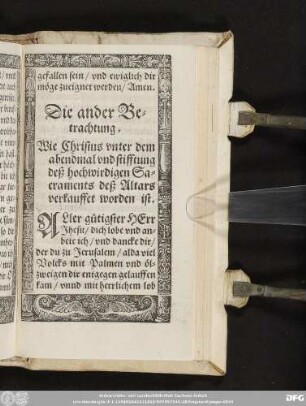 gefallen sein / vnd ewiglich dir
möge zueignet werden / Amen.
Die ander Be-
trachtung.
Wie Christus vnter dem
abendmal vnd stifftung
deß hochwirdigen Sa-
craments deß Altars
verkauffet worden ist.
ALler gütigster HErr
Jhesu / dich lobe vnd an-
bete ich / vnd dancke dir /
der du zu Jerusalem / alda viel
Volcks mit Palmen vnd öl-
zweigen dir entgegen gelauffen
kam / vnnd mit herrlichem lob
DFG